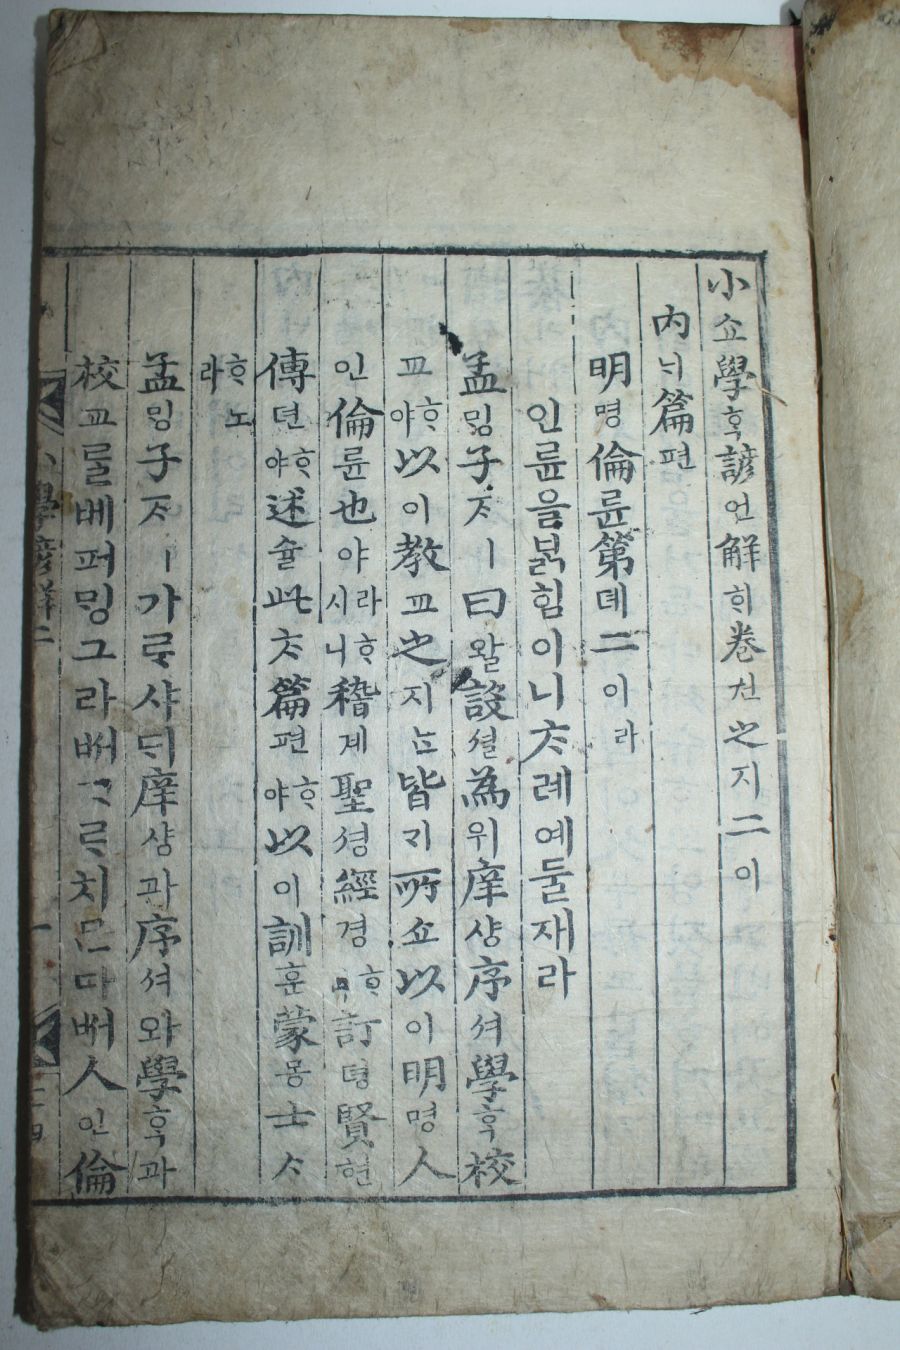 小쇼學ᄒᆞᆨ諺언解ᄒᆡ卷권之지二이
內ᄂᆡ篇편
明명倫륜第뎨二이라
인륜을븕힘이니ᄎᆞ례예둘재라
孟ᄆᆡᆼ子ᄌᆞㅣ曰왈設셜為위庠샹序셔學ᄒᆞᆨ校
교ᄒᆞ야以이敎교之지ᄂᆞᆫ皆ᄀᆡ所쇼以이明명人
인倫륜也야ㅣ라ᄒᆞ시니稽계聖셩經경ᄒᆞ며訂뎡賢현
傳뎐ᄒᆞ야述슐此ᄎᆞ篇편ᄒᆞ야以이訓훈蒙몽士ᄉᆞ
ᄒᆞ노라
孟ᄆᆡᆼ子ᄌᆞㅣ가ᄅᆞ샤ᄃᆡ庠샹과序셔와學ᄒᆞᆨ과
校교ᄅᆞᆯ베퍼ᄆᆡᆼ그라ᄡᅥᄀᆞᄅᆞ치믄다ᄡᅥ人인倫
小學諺解 二